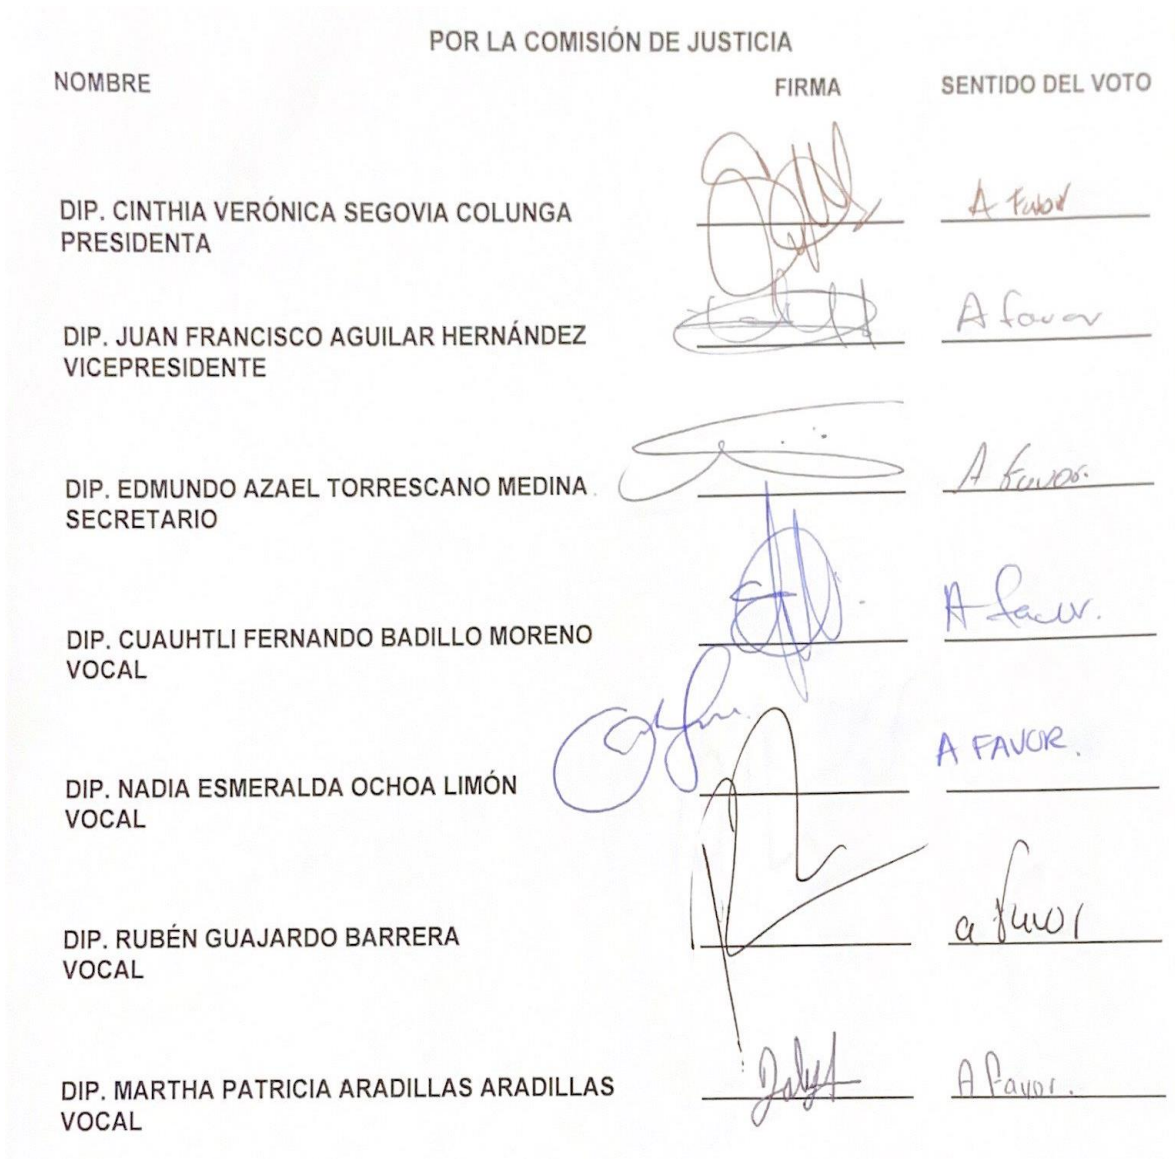 POR LA COMISIÓN DE JUSTICIA
NOMBRE FIRMA SENTIDO DEL VOTO
DIP. CINTHIA VERÓNICA SEGOVIA COLUNGA A Favor
PRESIDENTA
DIP. JUAN FRANCISCO AGUILAR HERNÁNDEZ A favor
VICEPRESIDENTE
DIP. EDMUNDO AZAEL TORRESCANO MEDINA A Favor.
SECRETARIO
DIP. CUAUHTLI FERNANDO BADILLO MORENO A favor.
VOCAL
A FAVOR.
DIP. NADIA ESMERALDA OCHOA LIMÓN
VOCAL
DIP. RUBÉN GUAJARDO BARRERA a favor
VOCAL
DIP. MARTHA PATRICIA ARADILLAS ARADILLAS A favor.
VOCAL